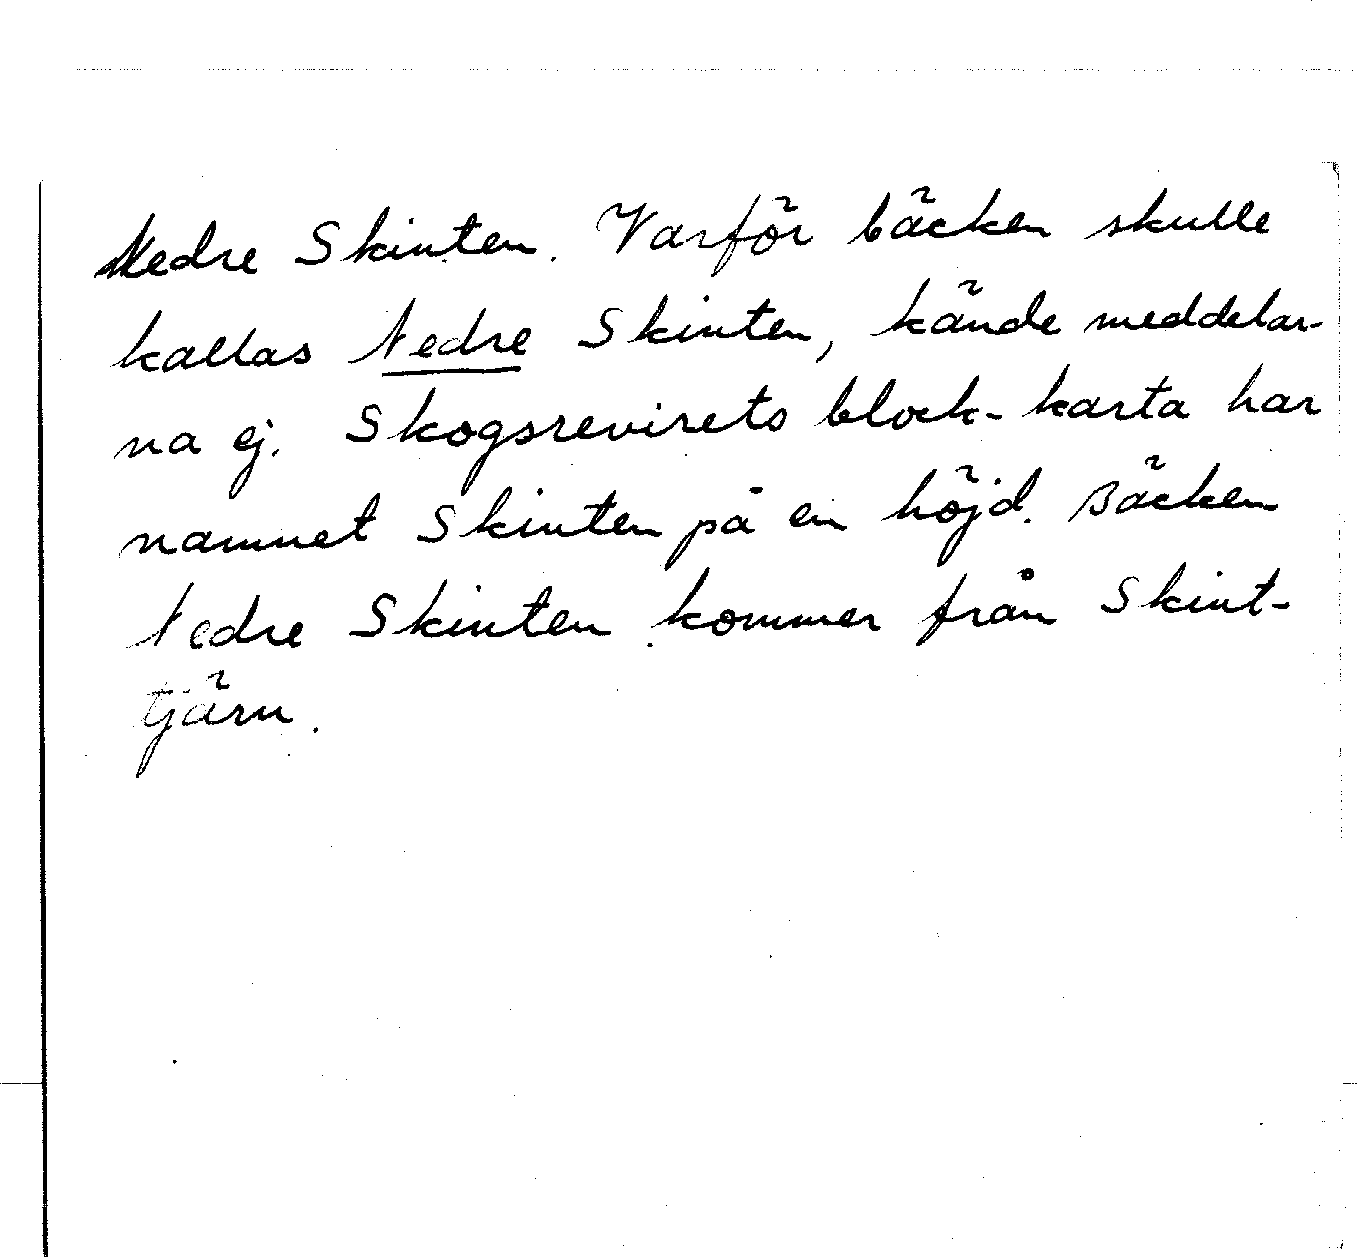 Nedre Skinten. Varför bäcken skulle
kallas Nedre Skinten, kände meddelar-
na ej. Skogsrevirets block-karta har
namnet Skinten på en höjd. Bäcken
Nedre Skinten kommer från Skint-
tjärn.